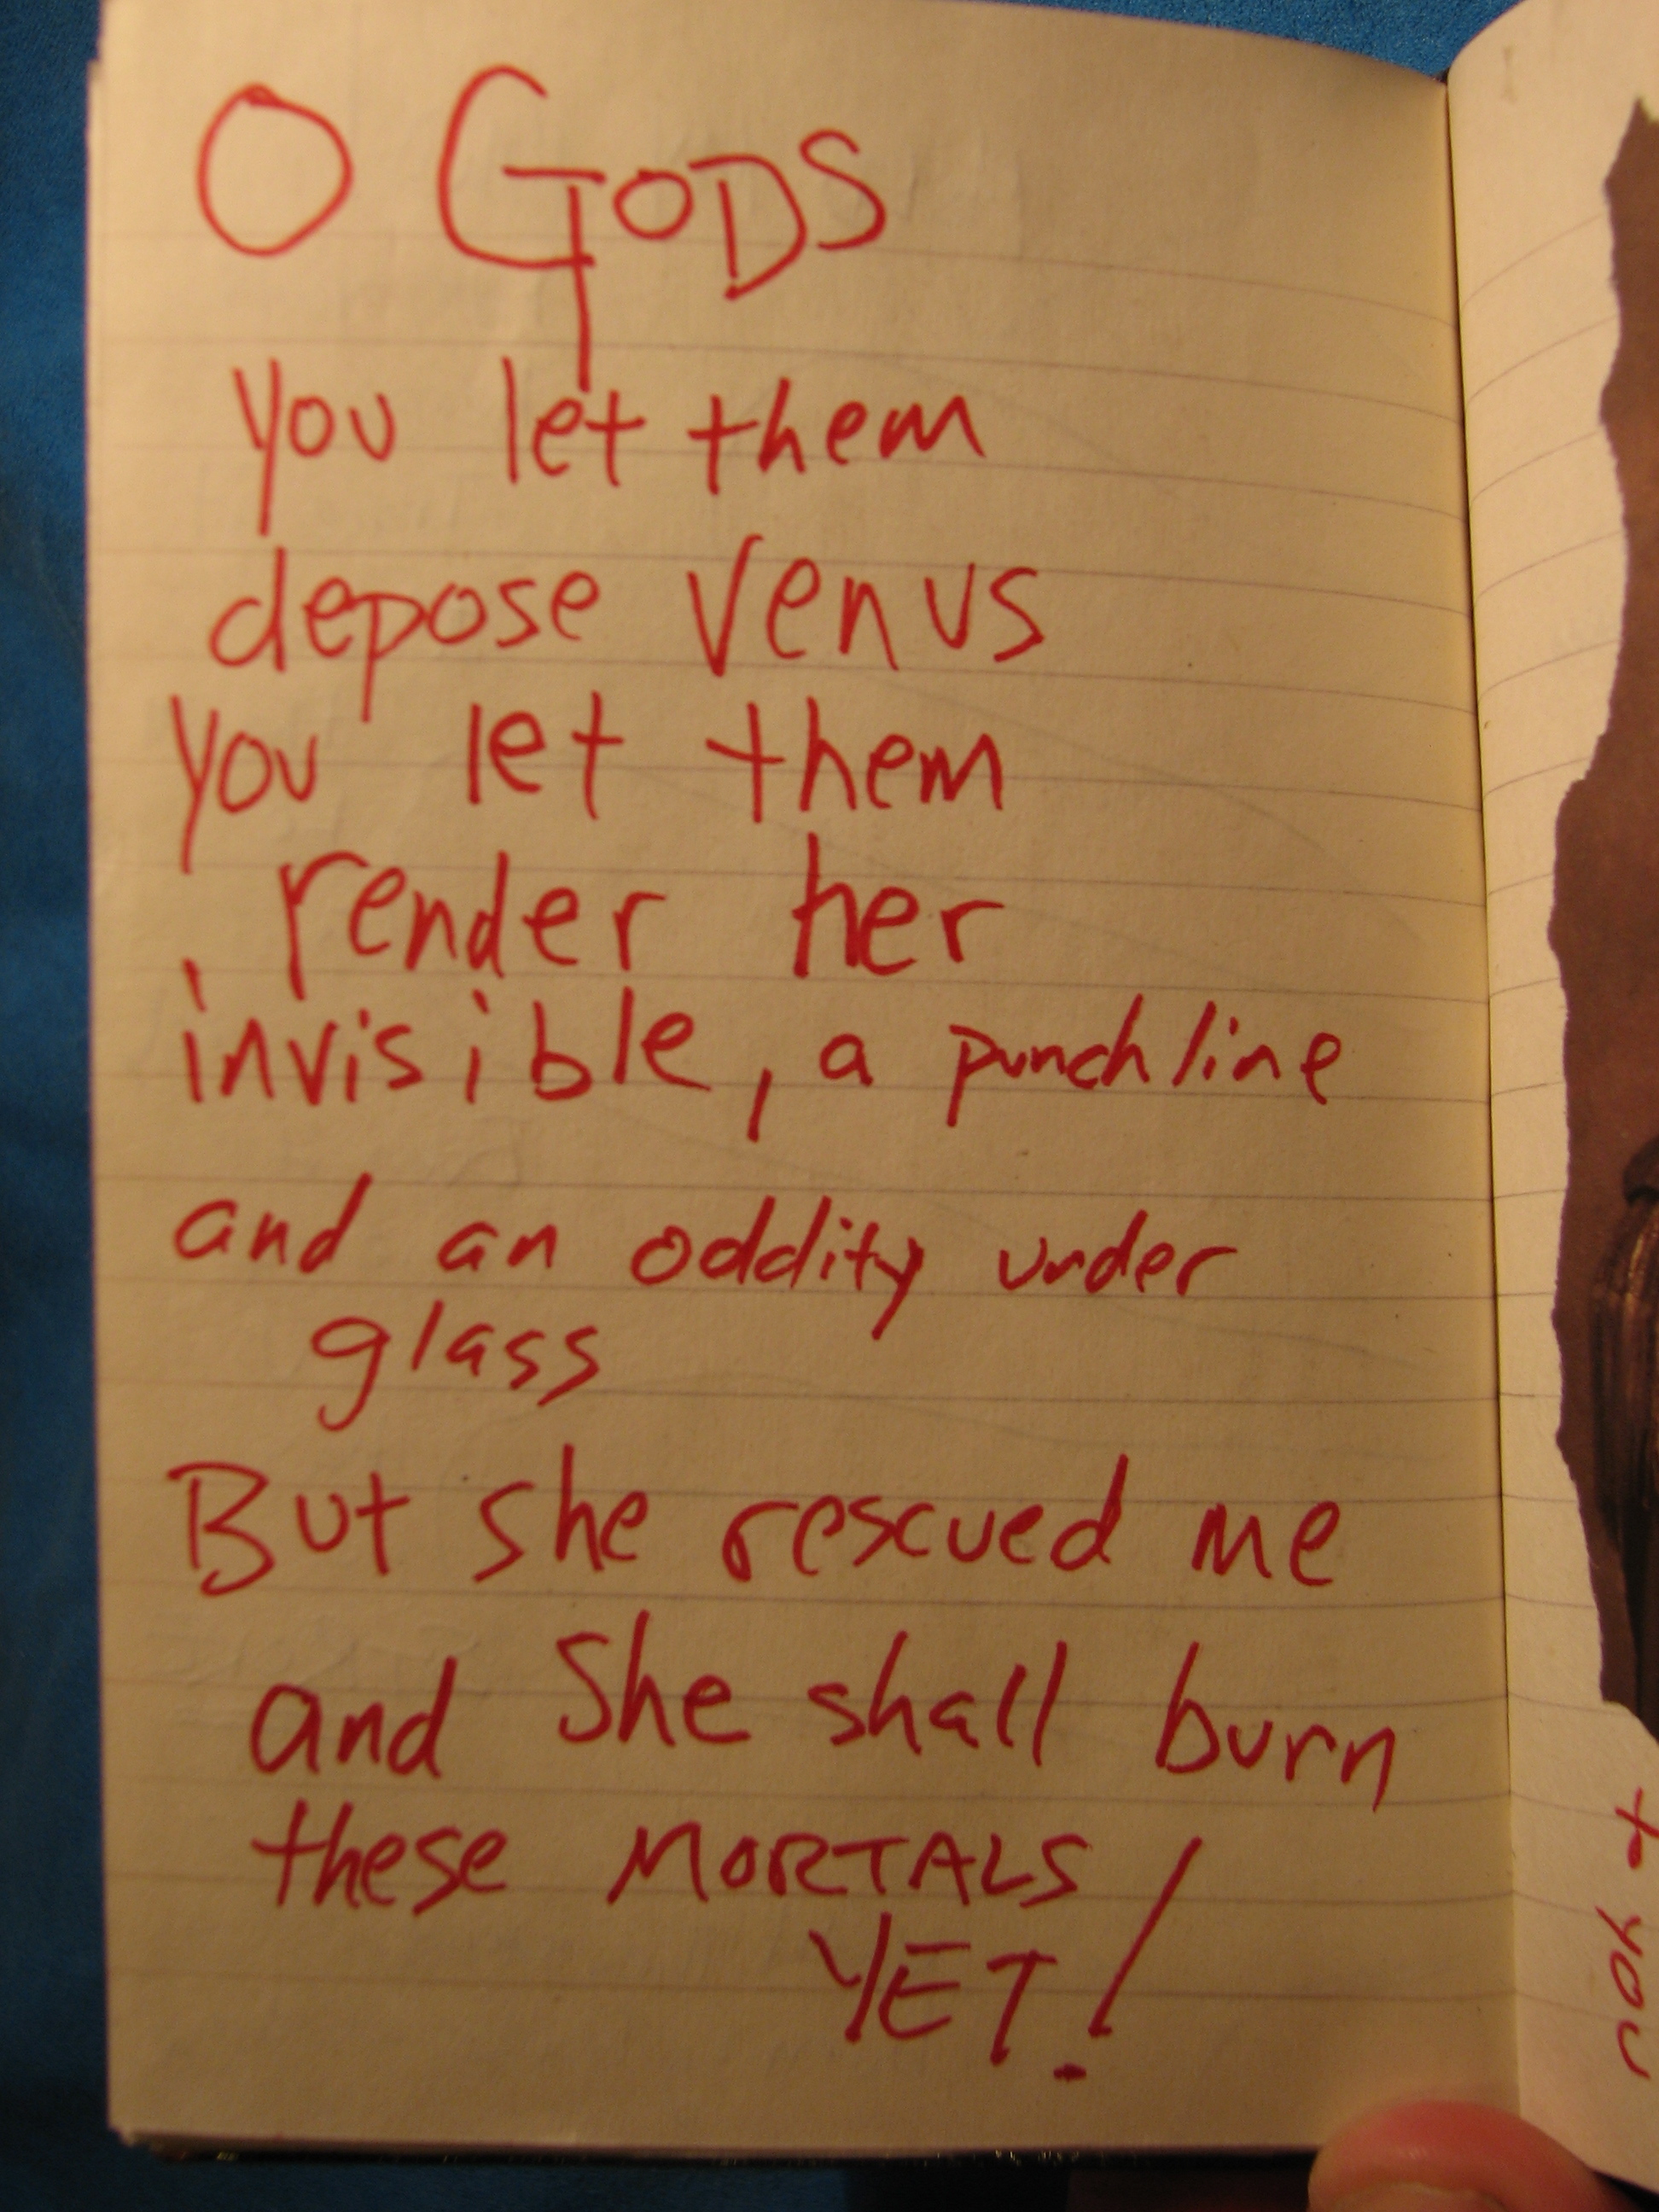 O GODS
you let them
depose Venus
you let them
render her
invisible, a punchline
and an oddity under
glass
But she rescued me
and She shall burn
these MORTALS
YET!
+ you